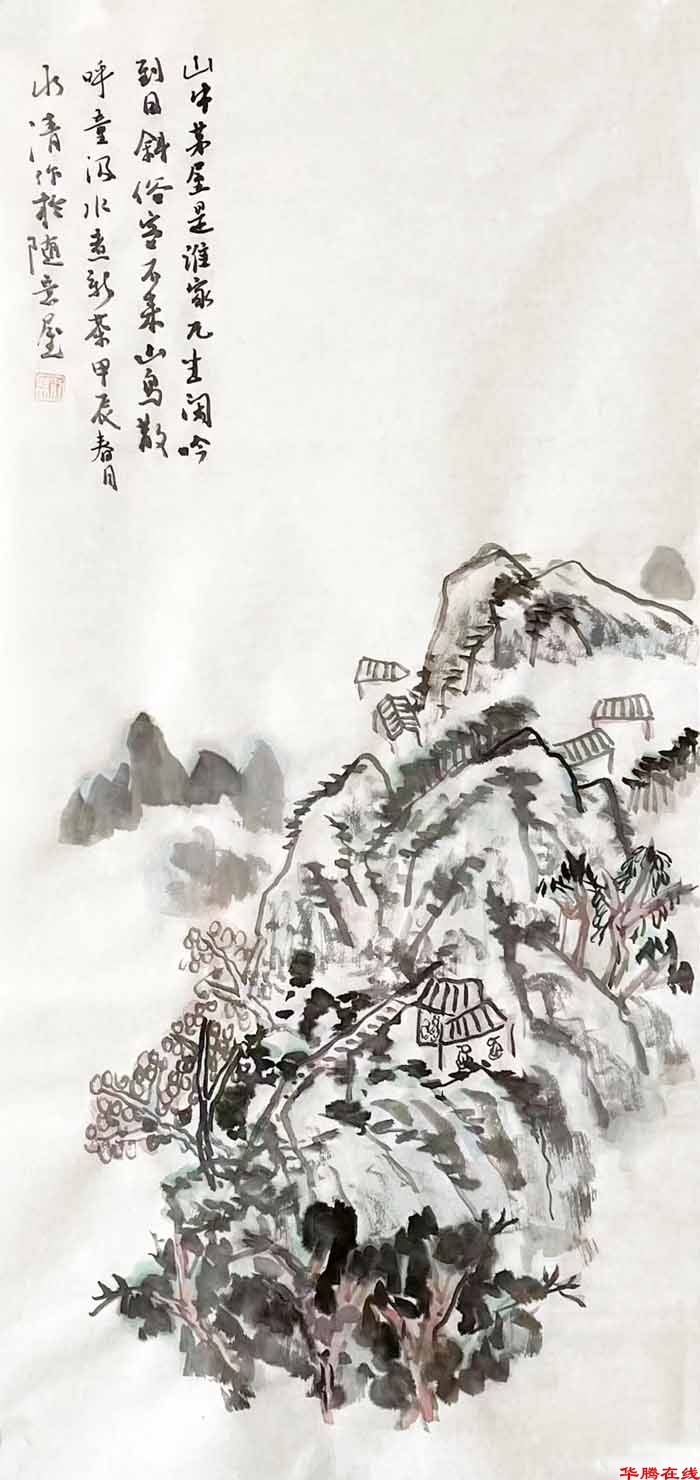 山中茅屋是谁家兀坐闲吟
到日斜俗客不来山鸟散
呼童汲水煮新茶甲辰春月
水清作於随意屋
华腾在线